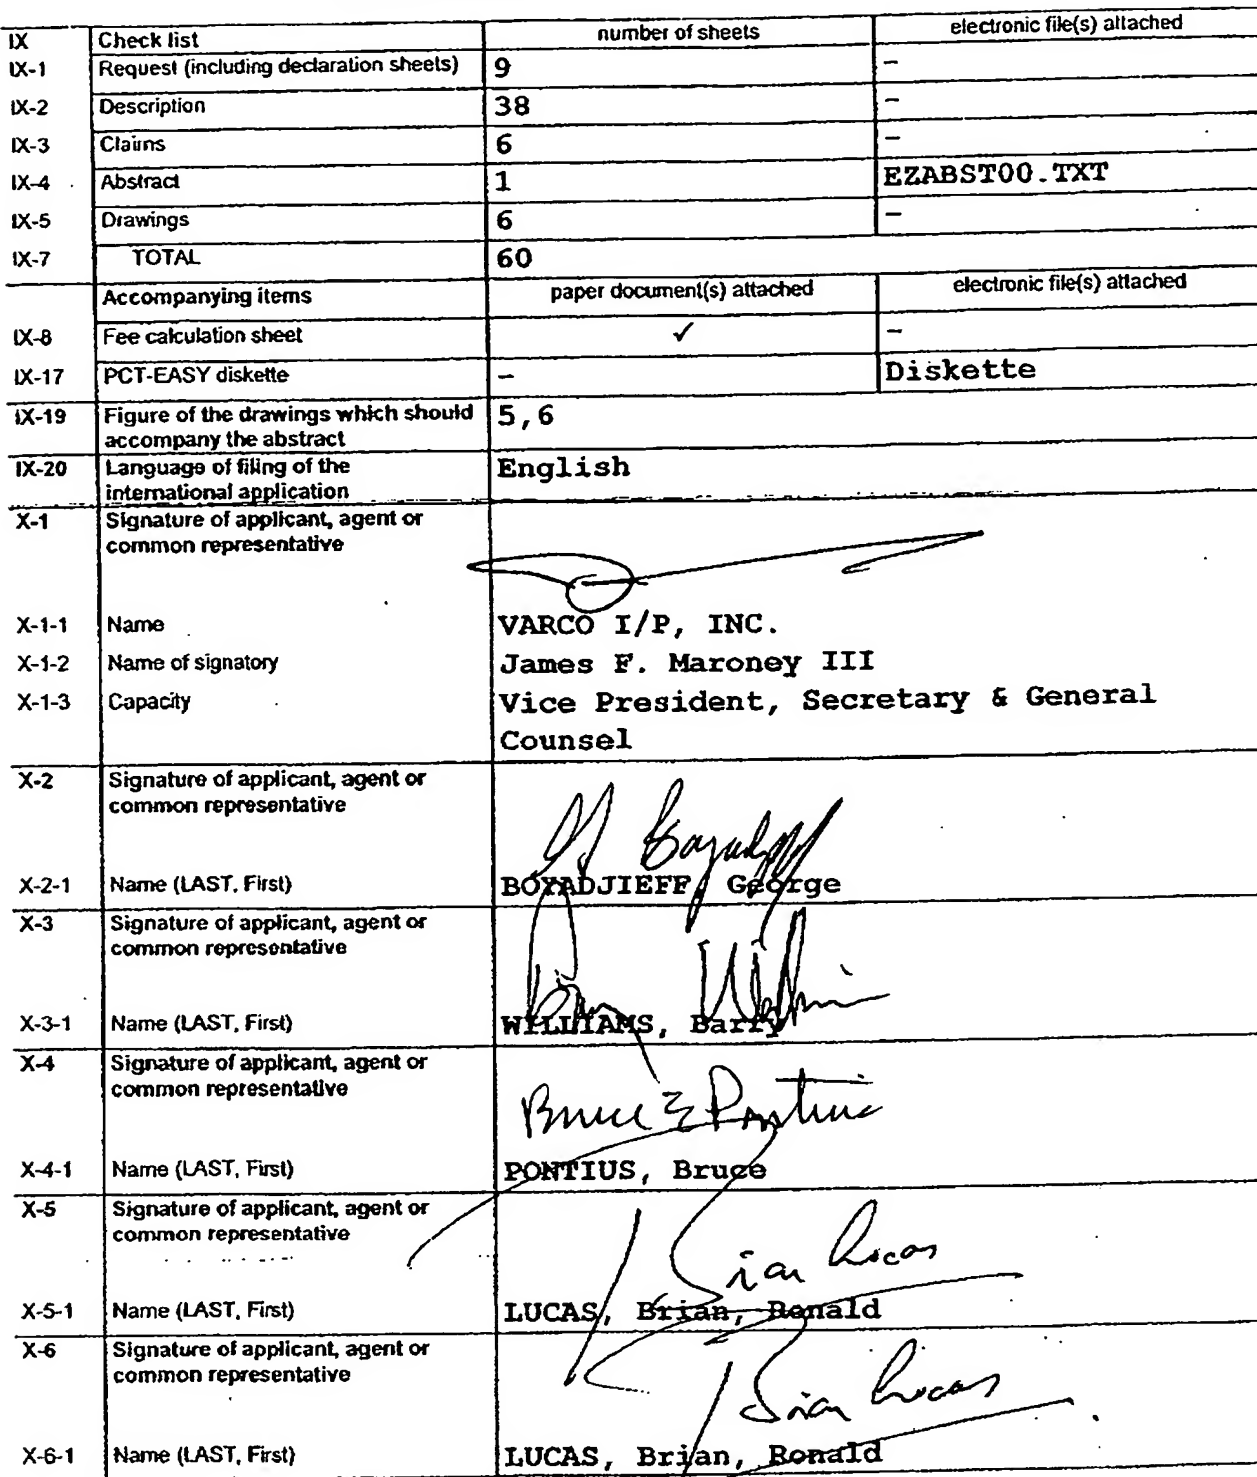 IX Check list number of sheets electronic file(s) attached
IX-1 Request (including declaration sheets) 9 –
IX-2 Description 38 –
IX-3 Claims 6 –
IX-4 Abstract 1 EZABST00.TXT
IX-5 Drawings 6 –
IX-7 TOTAL 60
Accompanying items paper document(s) attached electronic file(s) attached
IX-8 Fee calculation sheet ✓ –
IX-17 PCT-EASY diskette – Diskette
IX-19 Figure of the drawings which should 5,6
accompany the abstract
IX-20 Language of filing of the English
international application
X-1 Signature of applicant, agent or
common representative
X-1-1 Name VARCO I/P, INC.
X-1-2 Name of signatory James F. Maroney III
X-1-3 Capacity Vice President, Secretary & General
Counsel
X-2 Signature of applicant, agent or
common representative
X-2-1 Name (LAST, First) BOYADJIEFF, George
X-3 Signature of applicant, agent or
common representative
X-3-1 Name (LAST, First) WILLIAMS, Barry
X-4 Signature of applicant, agent or
common representative
Bruce E Pontius
X-4-1 Name (LAST, First) PONTIUS, Bruce
X-5 Signature of applicant, agent or
common representative
Brian Lucas
X-5-1 Name (LAST, First) LUCAS, Brian, Ronald
X-6 Signature of applicant, agent or
common representative
Brian Lucas
X-6-1 Name (LAST, First) LUCAS, Brian, Ronald